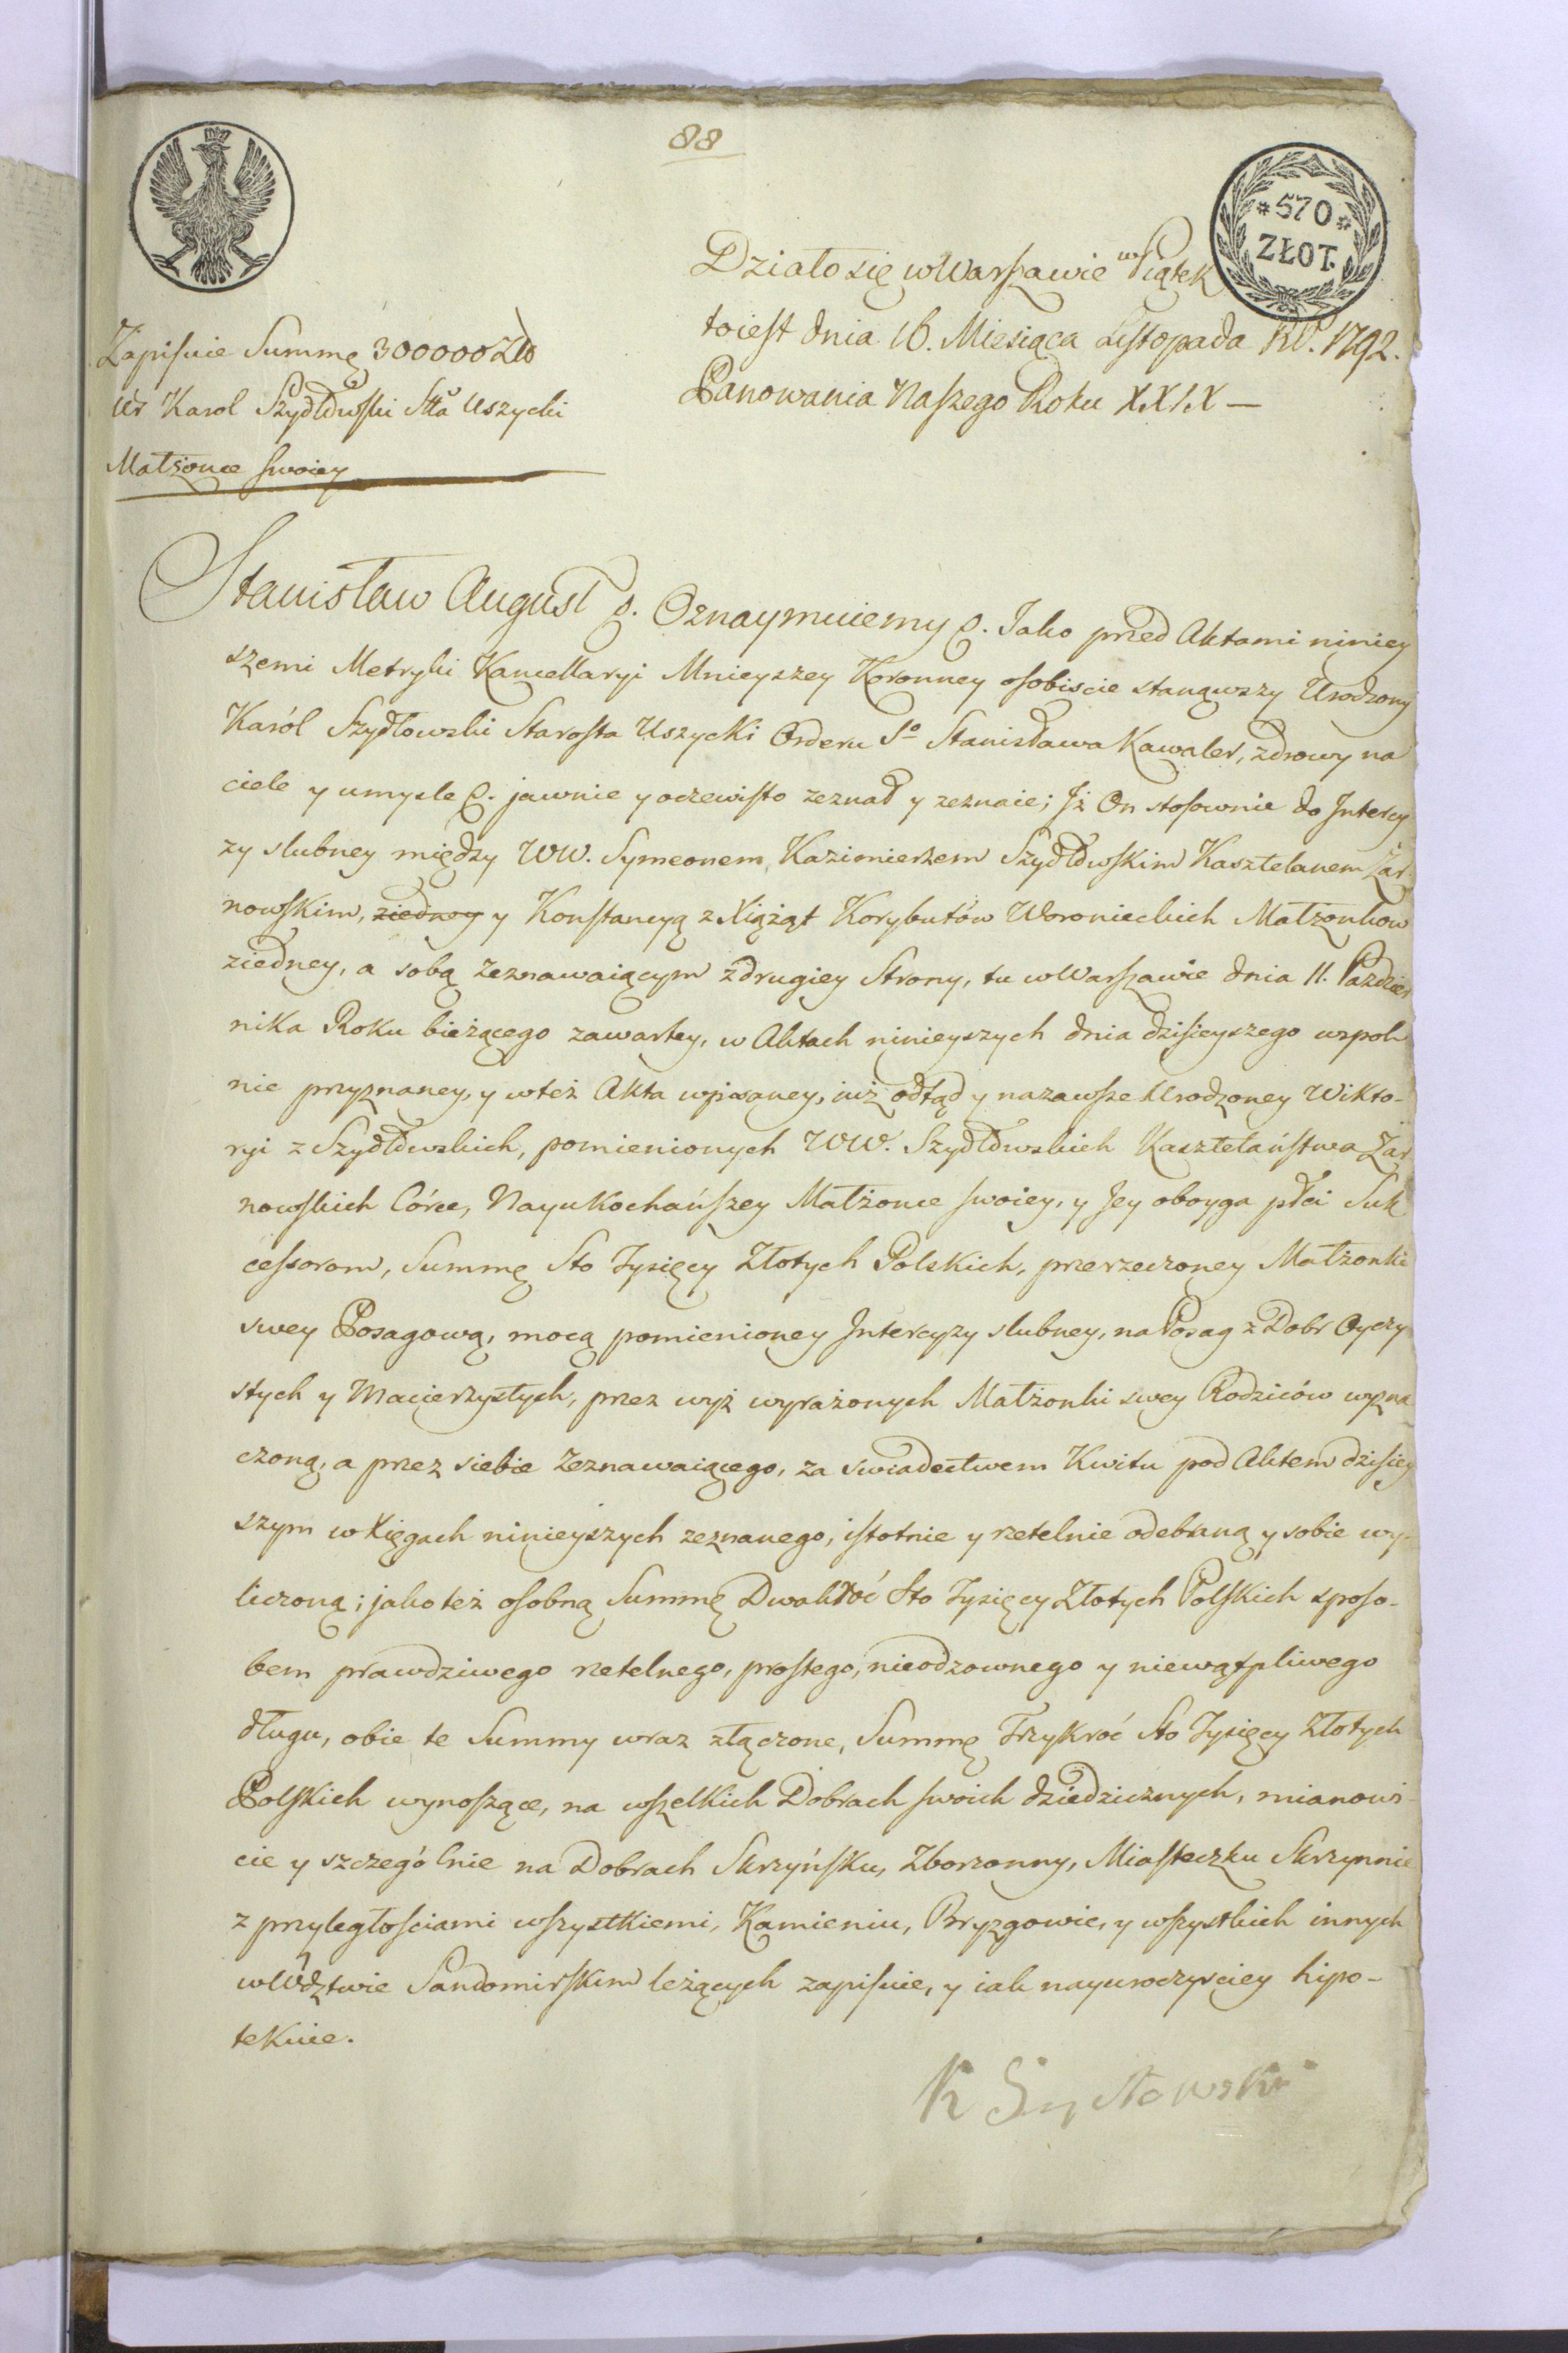 88
*570*
ZŁOT.
Działo się w Warszawie w Piątek
toiest dnia 16. Miesiąca Listopada RP. 1792.
Panowania Naszego Roku XXIX —
Zapisuie Summę 300000 Zło
Ur Karol Szydłowski Stta Uszycki
Małżonce swoiey
Stanisław August &. Oznaymuiemy &. Jako przed Aktami niniey
szemi Metryki Kancellaryi Mnieyszey Koronney osobiscie stanąwszy Urodzony
Karól Szydłowski Starosta Uszycki Orderu So Stanisława Kawaler, zdrowy na
ciele y umysle &. jawnie y oczewisto zeznał y zeznaie; Jż On stosownie do Jntercy
zy slubney między WW. Symeonem Kazimierzem Szydłowskim Kasztelanem Żar
nowskim, ziedney y Konstancyą z Xiążąt Korybutów Woronieckich Małżonkow
ziedney, a sobą zeznawaiącym z drugiey Strony, tu w Warszawie dnia 11. Pazdzier
nika Roku bieżącego zawartey, w Aktach ninieyszych dnia dzisieyszego wspol
nie przyznaney, y w też Akta wpisaney, iuż odtąd y nazawsze Urodzoney Wikto-
ryi z Szydłowskich, pomienionych WW. Szydłowskich Kasztelaństwa Żar
nowskich Córce, Nayukochańszey Małżonce swoiey, y Jey oboyga płci Suk
cessorom, Summę Sto Tysięcy Złotych Polskich, przerzeczoney Małżonki
swey Posagową, mocą pomienioney Jntercyzy slubney, na Posag z Dobr Oyczy
stych y Macierzystych, przez wyż wyrażonych Małżonki swey Rodziców wyzna
czoną, a przez siebie zeznawaiącego, za swiadectwem Kwitu pod Aktem dzisiey
szym w Xięgach ninieyszych zeznanego, istotnie y rzetelnie odebraną y sobie wy-
liczoną; jako też osobną Summę Dwakroć Sto Tysięcy Złotych Polskich sposo-
bem prawdziwego rzetelnego, prostego, nieodzownego y niewątpliwego
długu, obie te Summy wraz złączone, Summę Trzykroć Sto Tysięcy Złotych
Polskich wynoszące, na wszelkich Dobrach swoich dziedzicznych, mianowi-
cie y szczególnie na Dobrach Skrzyńsku, Zborzonny, Miasteczku Skrzynnie
z przyległościami wszystkiemi, Kamieniu, Bryzgowie, y wszystkich innych
w Wdztwie Sandomirskim leżących zapisuie, y iak nayuroczysciey hipo-
tekuie.
K Szydłowski